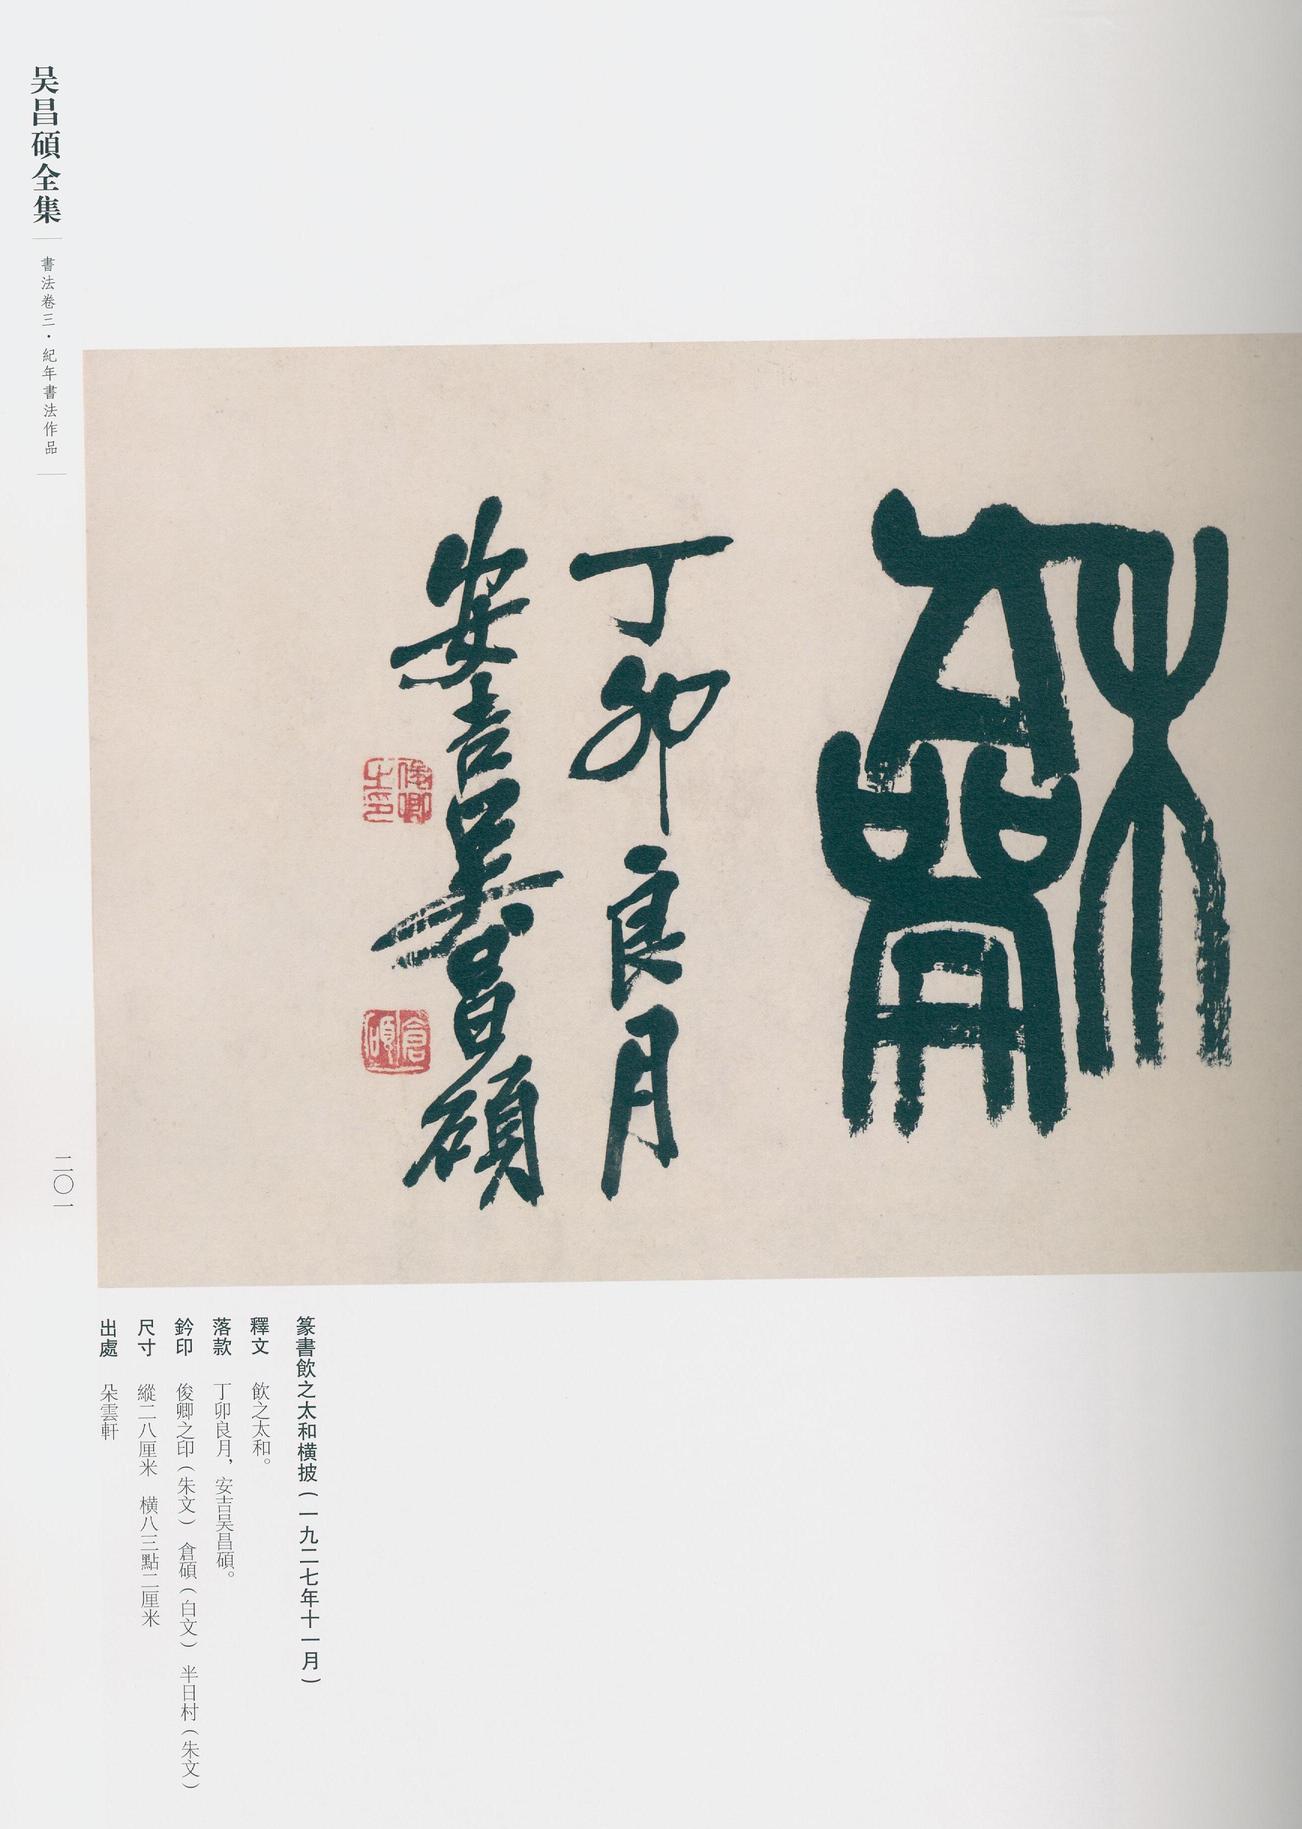 吴昌碩全集
書法卷三·紀年書法作品
龢
丁卯良月
安吉吴昌碩
俊卿之印
倉碩
二〇一
篆書飲之太和橫披(一九二七年十一月)
釋文 飲之太和。
落款 丁卯良月,安吉吴昌碩。
鈐印 俊卿之印(朱文) 倉碩(白文) 半日村(朱文)
尺寸 縱二八厘米 橫八三點二厘米
出處 朵雲軒